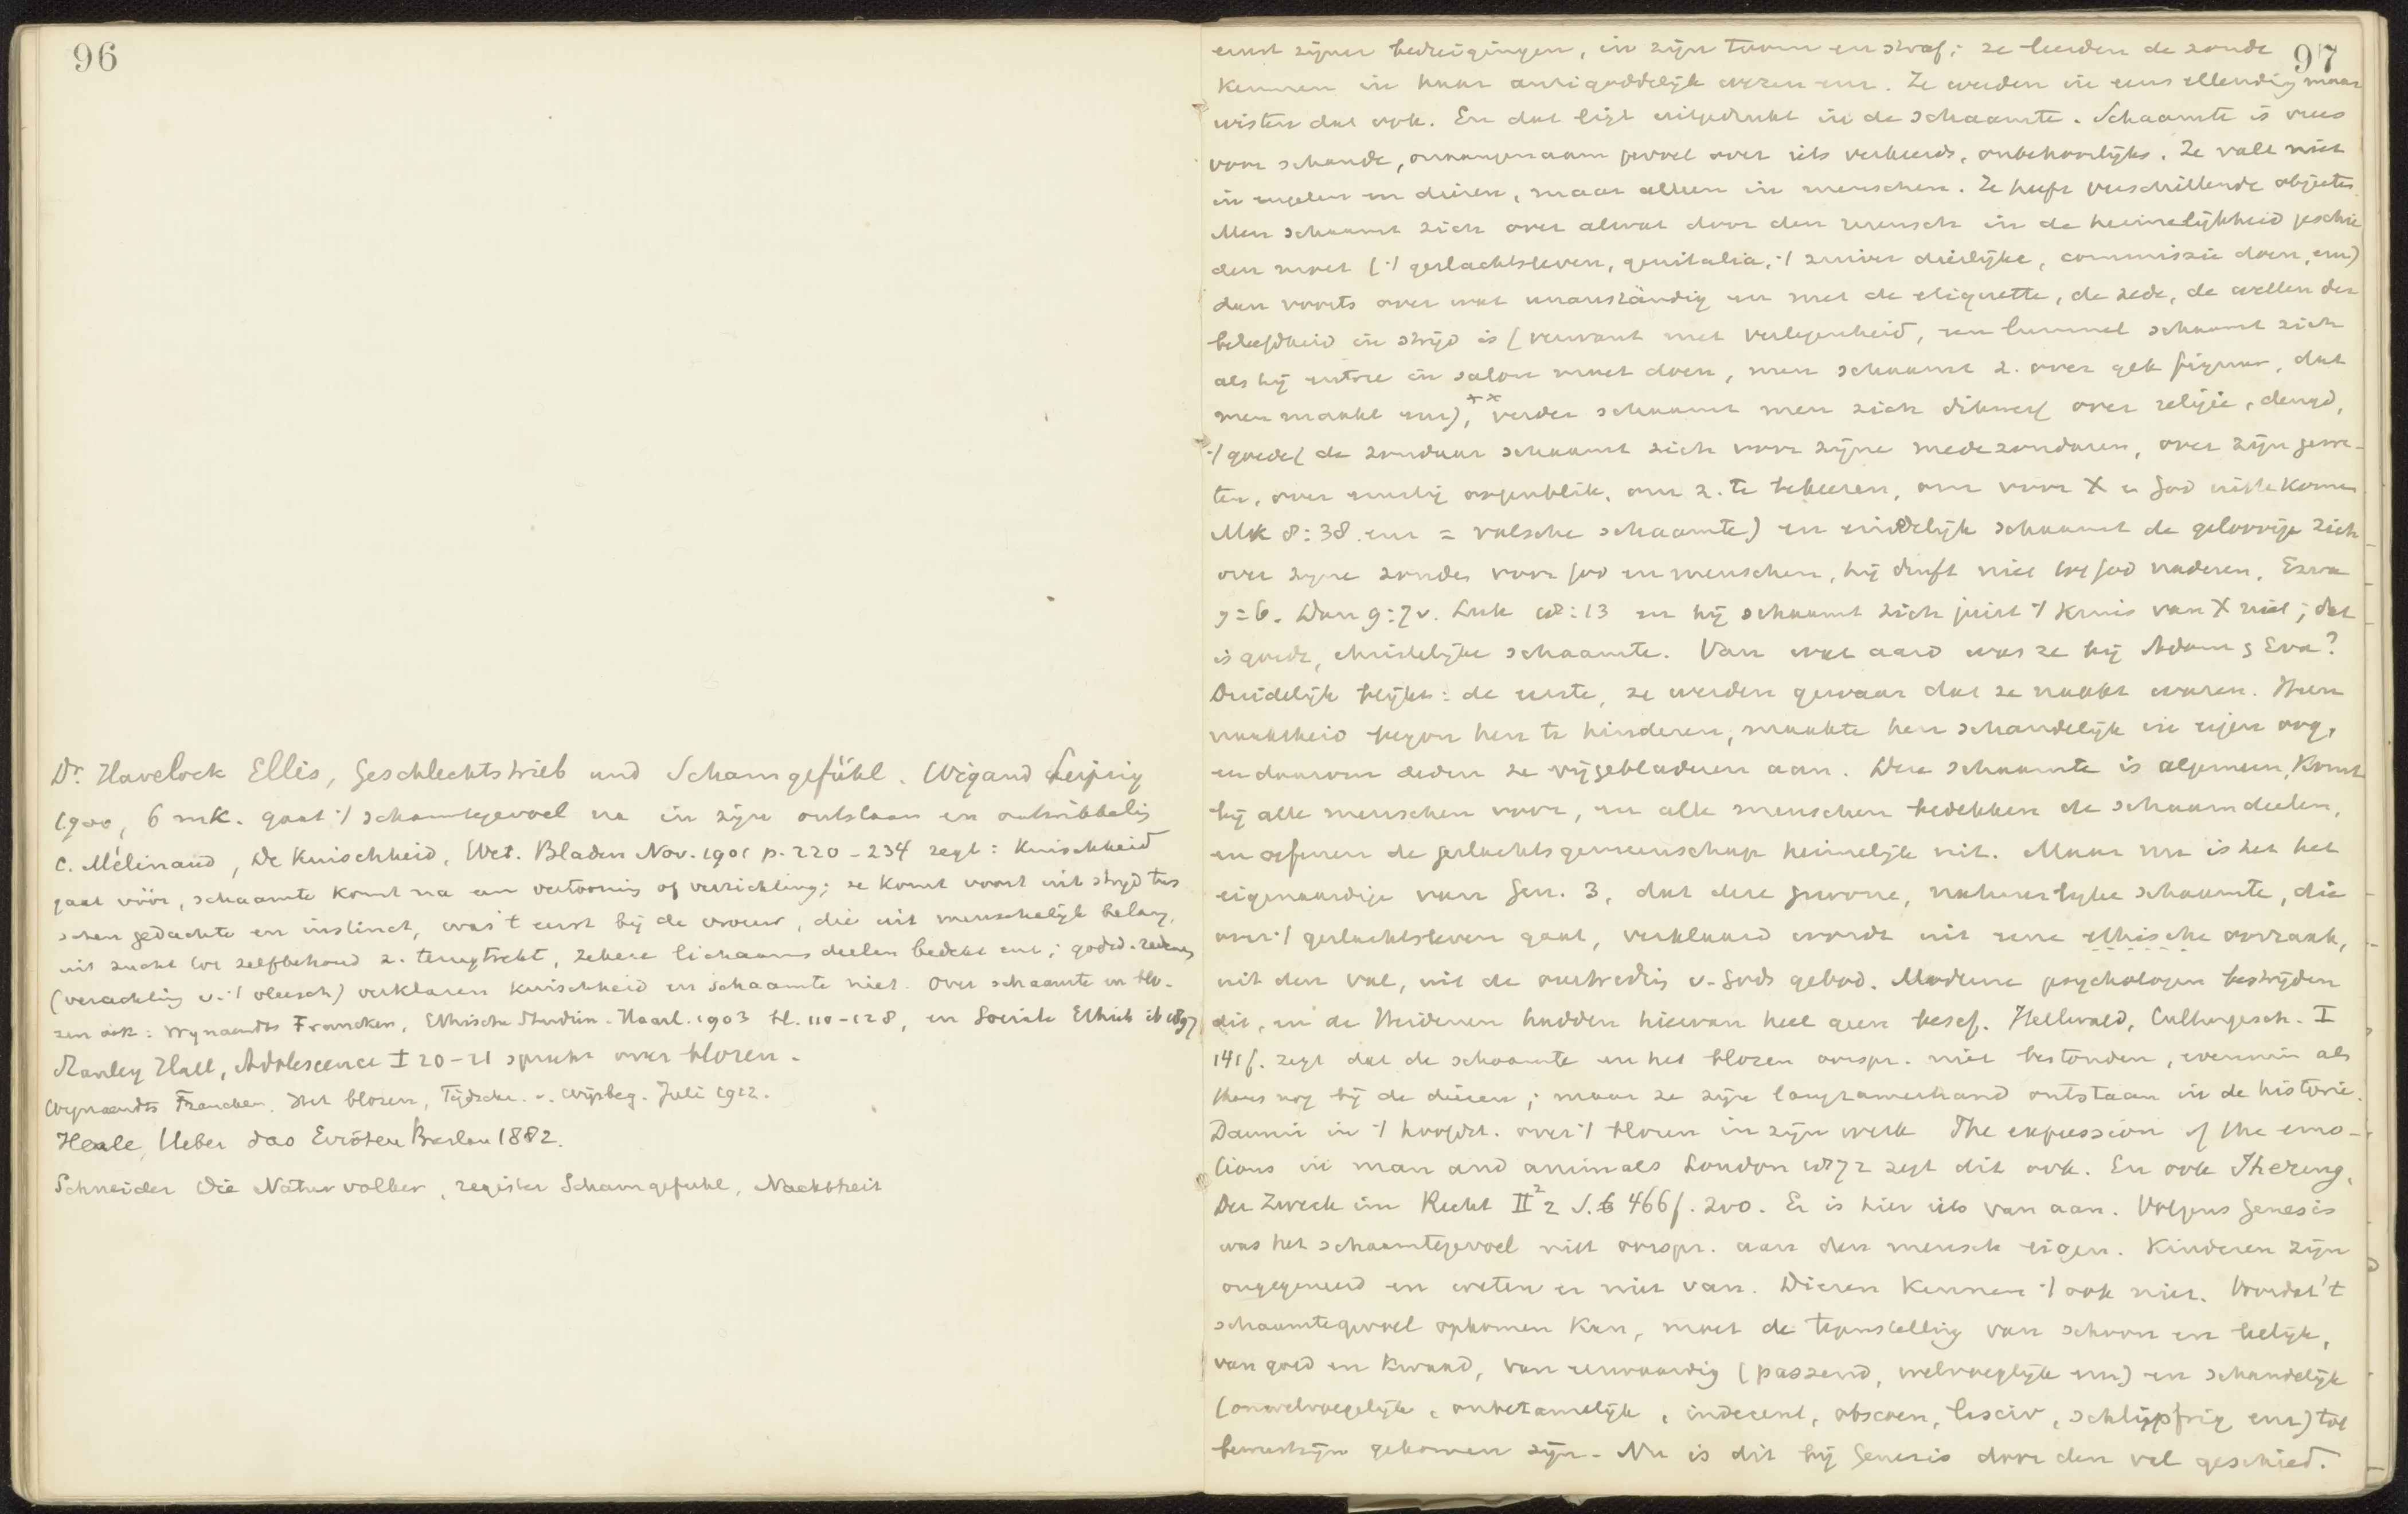 96
Dr. Havelock Ellis, Geschlechtstrieb und Schamgefühl. Wigand Leipzig
1900, 6 mk. gaat ·/ schamtegevoel na in zijn ontstaan en ontwikkelg
C. Mélinand, De Kuischheid, Wet. Bladen Nov. 1901 p. 220-234 zegt: Kuischheid
gaat vóór, schaamte komt na een vertooning of verrichting; ze komt voort uit strijd tus
schen gedachte en instinct, was 't eerst bij de vrouw, die uit menschelijk belang,
uit zucht tot zelfbehoud z. terugtrekt, zekere lichaamsdeelen bedekt enz; godsd. redenen
(verachting v. ·/ vleesch) verklaren kuischheid en schaamte niet. Over schaamte en blo-
zen ook: Wynaendts Francken, Ethische Studien. Haarl. 1903 bl. 110-128, en Sociale Ethiek ib 1897
Stanley Hall, Adolescence I 20-21 spreekt over blozen.
Wynaendts Francken. Het blozen, Tijdschr. v. Wijsbeg. Juli 1922.
Henle, Ueber das Eröten Breslau 1882.
Schneider Die Naturvolker, register Schamgefuhl, Nacktheit
97
ernst zijner bedreigingen, in zijn toorn en straf; ze leerden de zonde
kennen in haar antigoddelijk wezen enz. Ze werden in eens ellendig maar
wisten dat ook. En dat ligt uitgedrukt in de schaamte. Schaamte is vrees
voor schande, onaangenaam gevoel over iets verkeerds, onbehoorlijks. Ze valt niet
in engelen en dieren, maar alleen in menschen. Ze heeft verschillende objecten
Men schaamt zich over alwat door den mensch in de heimelijkheid geschie
den moet (·/ geslachtsleven, genitalia, ·/ zuiver dierlijke, commissie doen, enz)
dan voorts over wat unanständig en met de etiquette, de zede, de wetten der
beleefdheid in strijd is (verwant met verlegenheid, een lummel schaamt zich
als hij entree in salon moet doen, men schaamt z. over gek figuur, dat
men maakt enz), verder schaamt men zich dikwerf over religie, deugd,
·/ goede (de zondaar schaamt zich voor zijne medezondaren, over zijn gewe-
ten, over ernstig oogenblik, om z. te bekeeren, om voor X en God uit te komen
Mk 8:38. enz = valsche schaamte) en eindelijk schaamt de geloovige zich
over zijne zonden voor God en menschen, hij durft niet tot God naderen, Ezra
9:6. Dan 9:7v. Luk 18:13 en hij schaamt zich juist ·/ Kruis van X niet; dat
is goede, christelijke schaamte. Van wat aard was ze bij Adam & Eva?
Duidelijk blijkt: de eerste, ze werden gewaar dat ze naakt waren. Hun
naaktheid begon hen te hinderen, maakte hen schandelijk in eigen oog,
en daarom deden ze vijgebladeren aan. Deze schaamte is algemeen, komt
bij alle menschen voor, en alle menschen bedekken de schaamdeelen,
en oefenen de geslachtsgemeenschap heimelijk uit. Maar nu is het het
eigenaardige van Gen. 3, dat deze gewone, natuurlijke schaamte, die
over ·/ geslachtsleven gaat, verklaard wordt uit eene ethische oorzaak,
uit den val, uit de overtredig v. Gods gebod. Moderne psychologen bestrijden
dit, en de Heidenen hadden hiervan heel geen besef. Hellwald, Culturgesch. I
141f. zegt dat de schaamte en het blozen oorspr. niet bestonden, evenmin als
thans nog bij de dieren; maar ze zijn langzamerhand ontstaan in de historie.
Darwin in ·/ hoofdst. over ·/ blozen in zijn werk The expression of the emo-
tions in man and animals London 1872 zegt dit ook. En ook Jhering,
Der Zweck im Recht II² 2 S. 466f. 200. Er is hier iets van aan. Volgens Genesis
was het schaamtegevoel niet oorspr. aan den mensch eigen. Kinderen zijn
ongegeneerd en weten er niet van. Dieren kennen ·/ ook niet. Voordat 't
schaamtegevoel opkomen kan, moet de tegenstelling van schoon en leelijk,
van goed en kwaad, van eerwaardig (passend, welvoeglijk enz) en schandelijk
(onwelvoegelijk, onbetamelijk, indecent, obscoen, lasciv, schlüpfrig enz) tot
bewustzijn gekomen zijn. Nu is dit bij Genesis door den val geschied.